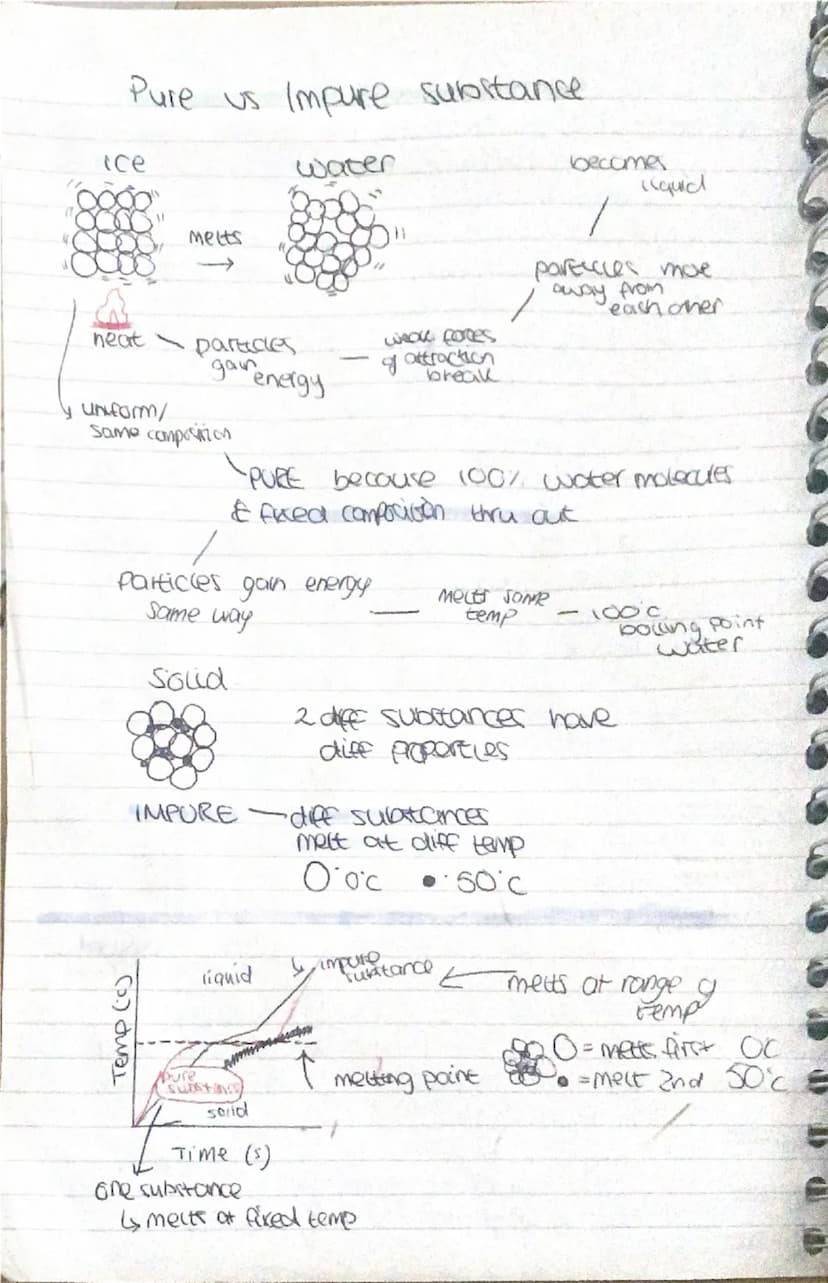 Pure vs Impure substance
ice
water
becomes
liquid
melts
particles move
away from
each other
heat
particles
gain
energy
weak forces
of attraction
break
uniform/
same composition
PURE because 100% water molecules
& fixed composition thru out
Particles gain energy
same way
melts same
temp
100°c
boiling point
water
Solid
2 diff substances have
diff properties
IMPURE — diff substances
melt at diff temp
0°c
50°c
Temp (c)
liquid
impure
substance
melts at range of
temp
pure
substance
solid
melting point
= melts first 0c
= melt 2nd 50°c
Time (s)
one substance
↳ melts at fixed temp